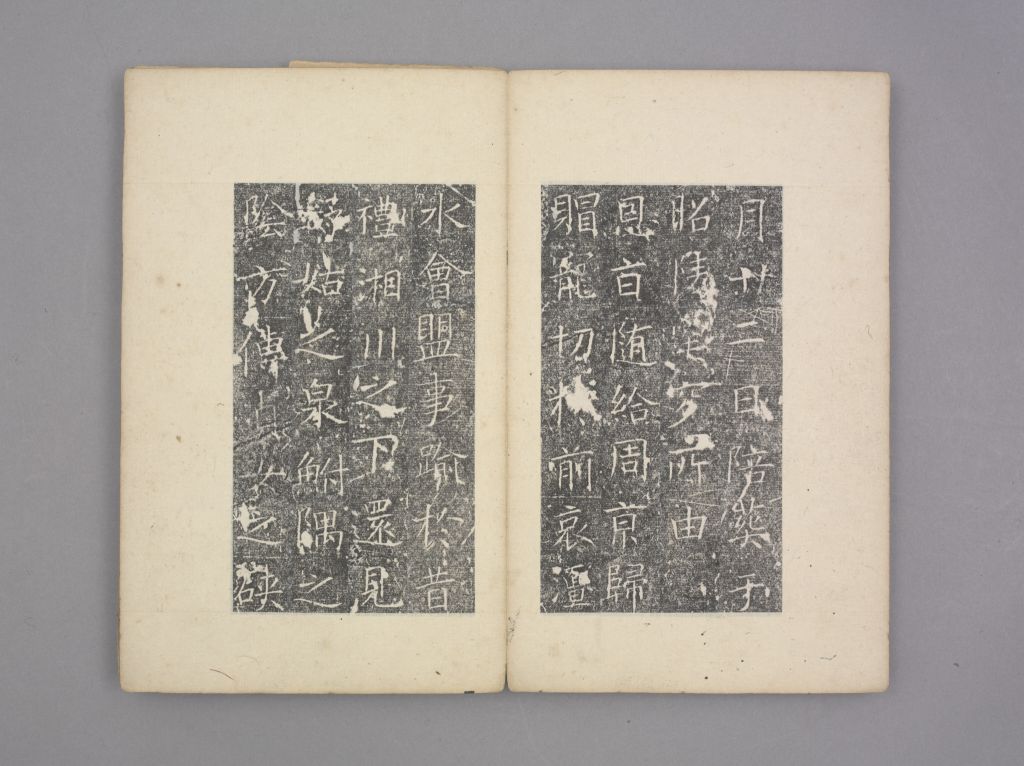 月廿二日陪葬于
昭陵 所由
恩旨随給周京歸
賵龍切 前哀灃
水會盟事踰於昔
禮湘川之下還見
姑之泉鮒隅之
陰方傳貞女之硤